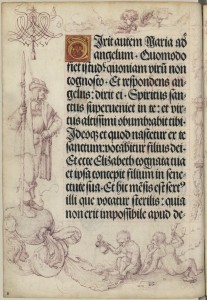 DIxit autem Maria ad
angelum. Quomodo
fiet istud: quoniam virū non
cognosco. Et respondens an-
gelus: dixit ei. Spiritus san-
ctus superueniet in te: et vir-
tus altissimi obumbrabit tibi
Ideoq; et quod nascetur ex te
sanctum: vocabitur filius dei:
Et ecce Elizabeth cognata tua
et ipsa concepit filium in sene-
ctute sua. Et hic mēsis est sextꝰ
illi que vocatur sterilis: quia
non erit impossibile apud de-